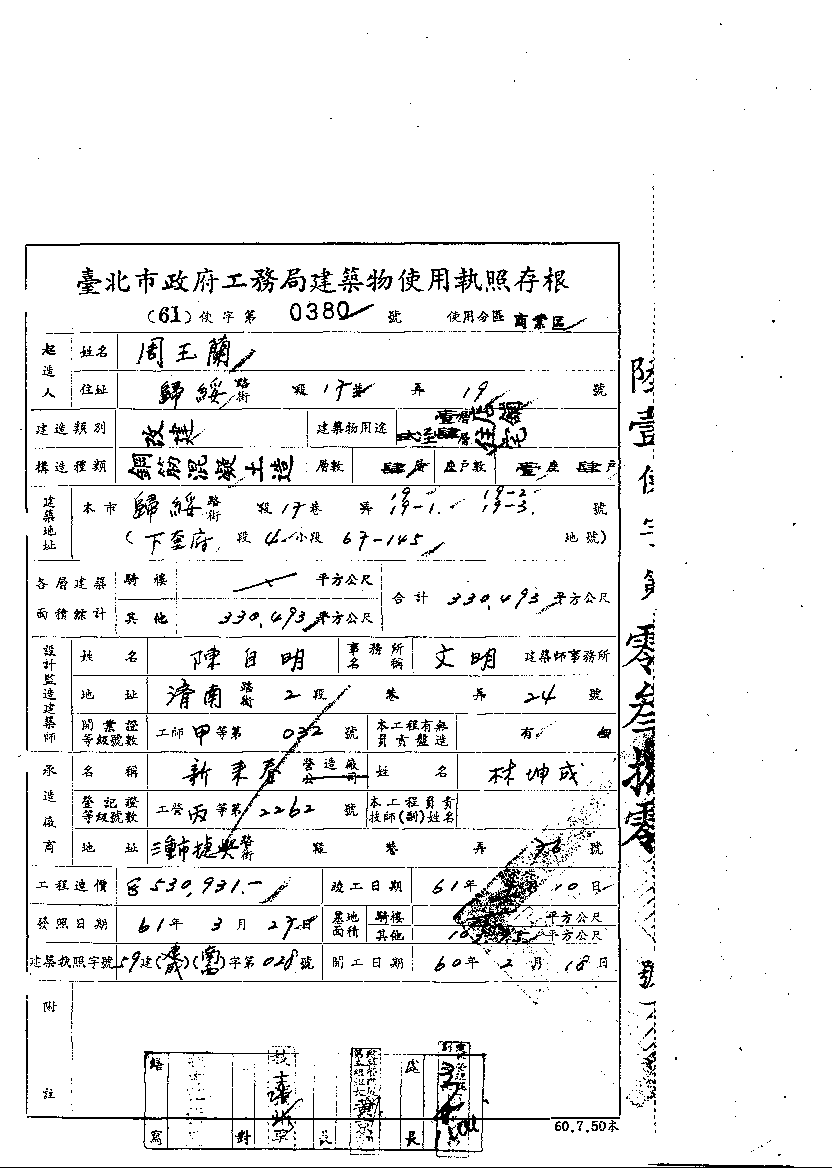 臺北市政府工務局建築物使用執照存根
(61)使字第 0380 號 使用分區 商業區
起造人 姓名 周王蘭
住址 歸綏 路街 段 17巷 弄 19 號
建造類別 改建 建築物用途 壹層店舖 貳至肆層住宅
構造種類 鋼筋混凝土造 層數 肆層 座戶數 壹座 肆戶
建築地址 本市 歸綏 路街 段 17巷 弄 19 19-1. 19-2 19-3. 號
(下奎府 段 4 小段 67-145 地號)
各層建築面積綜計 騎樓 平方公尺 合計 330.493 平方公尺
其他 330.493 平方公尺
設計監造建築師 姓名 陳自明 事務所名稱 文明 建築師事務所
地址 濟南 路街 2段 巷 弄 24 號
開業證等級號數 工師甲等第 032 號 本工程有無負責監造 有
承造廠商 名稱 新來發 營造廠公司 姓名 林坤成
登記證等級號數 工營丙等第 2262 號 本工程負責技師(副)姓名
地址 三重市捷興 路街 段 巷 弄 號
工程造價 530,931.- 竣工日期 61年 月 10日
發照日期 61年 3月 27日 基地面積 騎樓 平方公尺
其他 平方公尺
建築執照字號 59建( )( )字第028號 開工日期 60年 2月 18日
附註
繕寫 對 長 處長
60.7.50本
陸壹使字第零叁捌零號